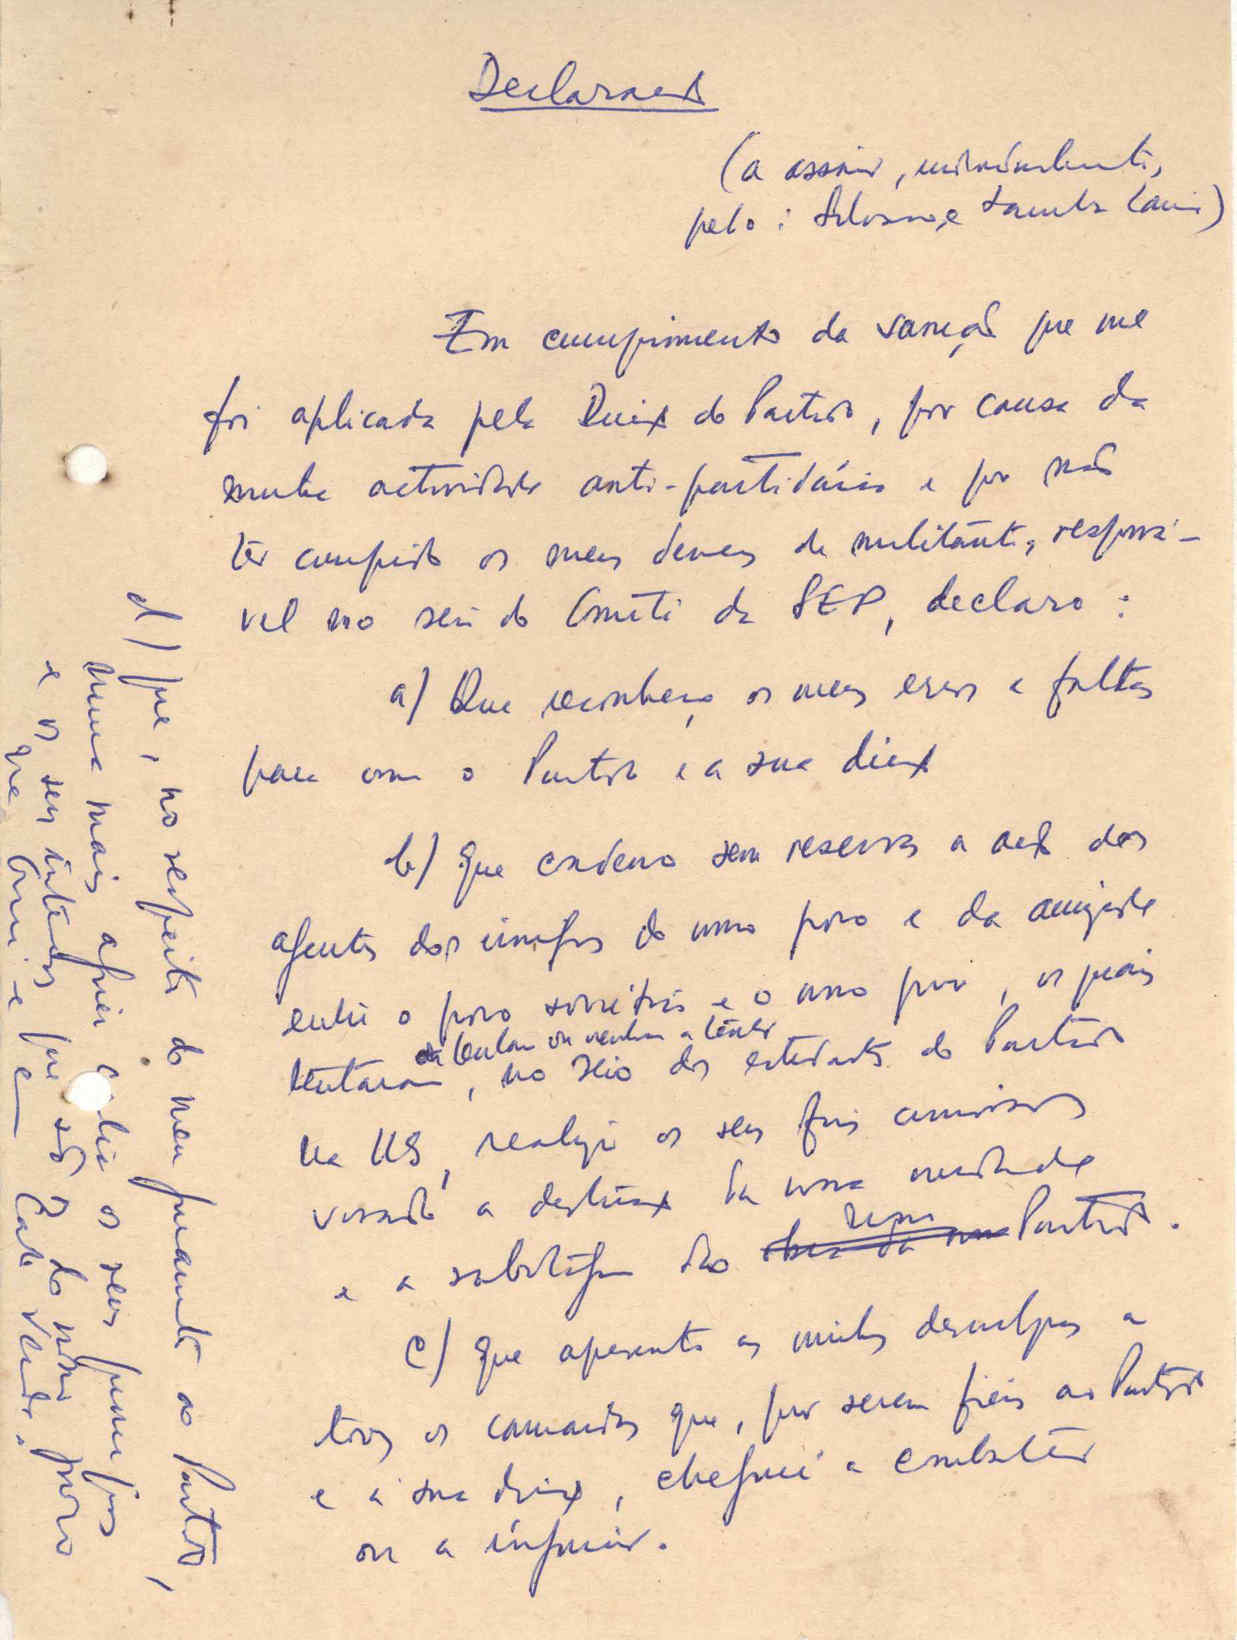 Declaração
(a assinar, individualmente,
pelo:
Em cumprimento da sanção que me
foi aplicada pela Direcç do Partido, por causa da
minha actividade anti-partidária e por não
ter cumprido os meus deveres de militante, responsá-
vel no seio do Comité da SEP, declaro:
a) Que reconheço os meus erros e faltas
para com o Partido e a sua direcç
b) que condeno sem reservas a acção dos
agentes dos inimigos do nosso povo e da amizade
entre o povo soviético e o nosso povo, os quais
ou tentam ou venham a tentar
tentaram, no seio dos estudantes do Partido
na US, realizar os seus fins criminosos
visando a destruiç da nossa unidade
e a sabotagem do nosso Partido.
c) que apresento as minhas desculpas a
todos os camaradas que, por serem fiéis ao Partido
e à sua direcç, cheguei a combater
ou a injuriar.
d) que, no respeito do meu juramento ao Partido,
nunca mais agirei contra os seus princípios
e os seus interesses que são os do nosso povo
na Guiné e em Cabo Verde.